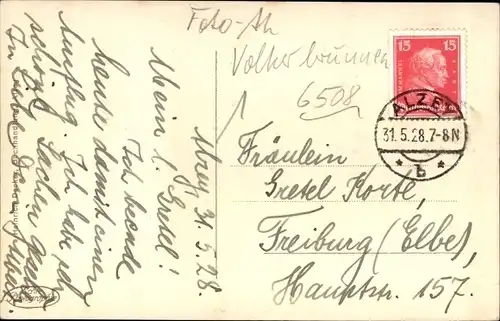 Foto-Ak
Volkerbrunnen
6508
Alzey 31.5.28.
Mein l. Gretel!
Ich beende
heute damit einen
Ausflug. Ich habe
schöne Sachen
In
15 15
ALZEY
31.5.28.7-8N
* b *
Fräulein
Gretel Korte,
Freiburg (Elbe),
Hauptstr. 157.